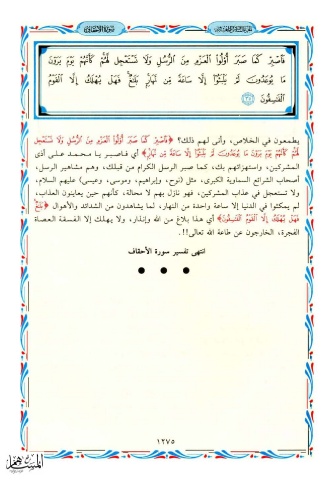 فَاصْبِرْ كَمَا صَبَرَ أُوْلُوا الْعَزْمِ مِنَ الرُّسُلِ وَلَا تَسْتَعْجِل لَّهُمْ كَأَنَّهُمْ يَوْمَ يَرَوْنَ
مَا يُوعَدُونَ لَمْ يَلْبَثُوا إِلَّا سَاعَةً مِّن نَّهَارٍ بَلَاغٌ فَهَلْ يُهْلَكُ إِلَّا الْقَوْمُ
الْفَاسِقُونَ ﴿٣٥﴾
يطمعون في الخلاص، وأنى لهم ذلك؟ ﴿فَاصْبِرْ كَمَا صَبَرَ أُوْلُوا الْعَزْمِ مِنَ الرُّسُلِ وَلَا تَسْتَعْجِل
لَّهُمْ كَأَنَّهُمْ يَوْمَ يَرَوْنَ مَا يُوعَدُونَ لَمْ يَلْبَثُوا إِلَّا سَاعَةً مِّن نَّهَارٍ﴾ أي فاصبر يا محمد على أذى
المشركين، واستهزائهم بك، كما صبر الرسل الكرام من قبلك، وهم مشاهير الرسل،
أصحاب الشرائع السماوية الكبرى، مثل (نوح، وإبراهيم، وموسى، وعيسى) عليهم السلام،
ولا تستعجل في عذاب المشركين، فهو نازل بهم لا محالة، كأنهم حين يعاينون العذاب،
لم يمكثوا في الدنيا إلا ساعة واحدة من النهار، لما يشاهدون من الشدائد والأهوال ﴿بَلَاغٌ
فَهَلْ يُهْلَكُ إِلَّا الْقَوْمُ الْفَاسِقُونَ﴾ أي هذا بلاغ من الله وإنذار، ولا يهلك إلا الفسقة العصاة
الفجرة، الخارجون عن طاعة الله تعالى!!.
انتهى تفسير سورة الأحقاف
١٢٧٥